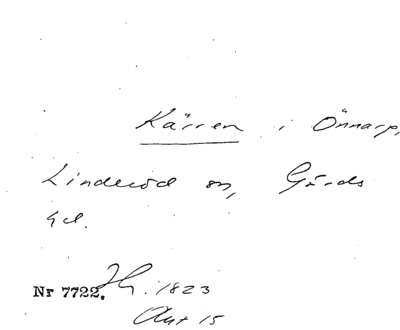 Kärren i Önnarp,
Linderöd sn, Gärds
hd.
Nr 7722. 1823
Akt 15